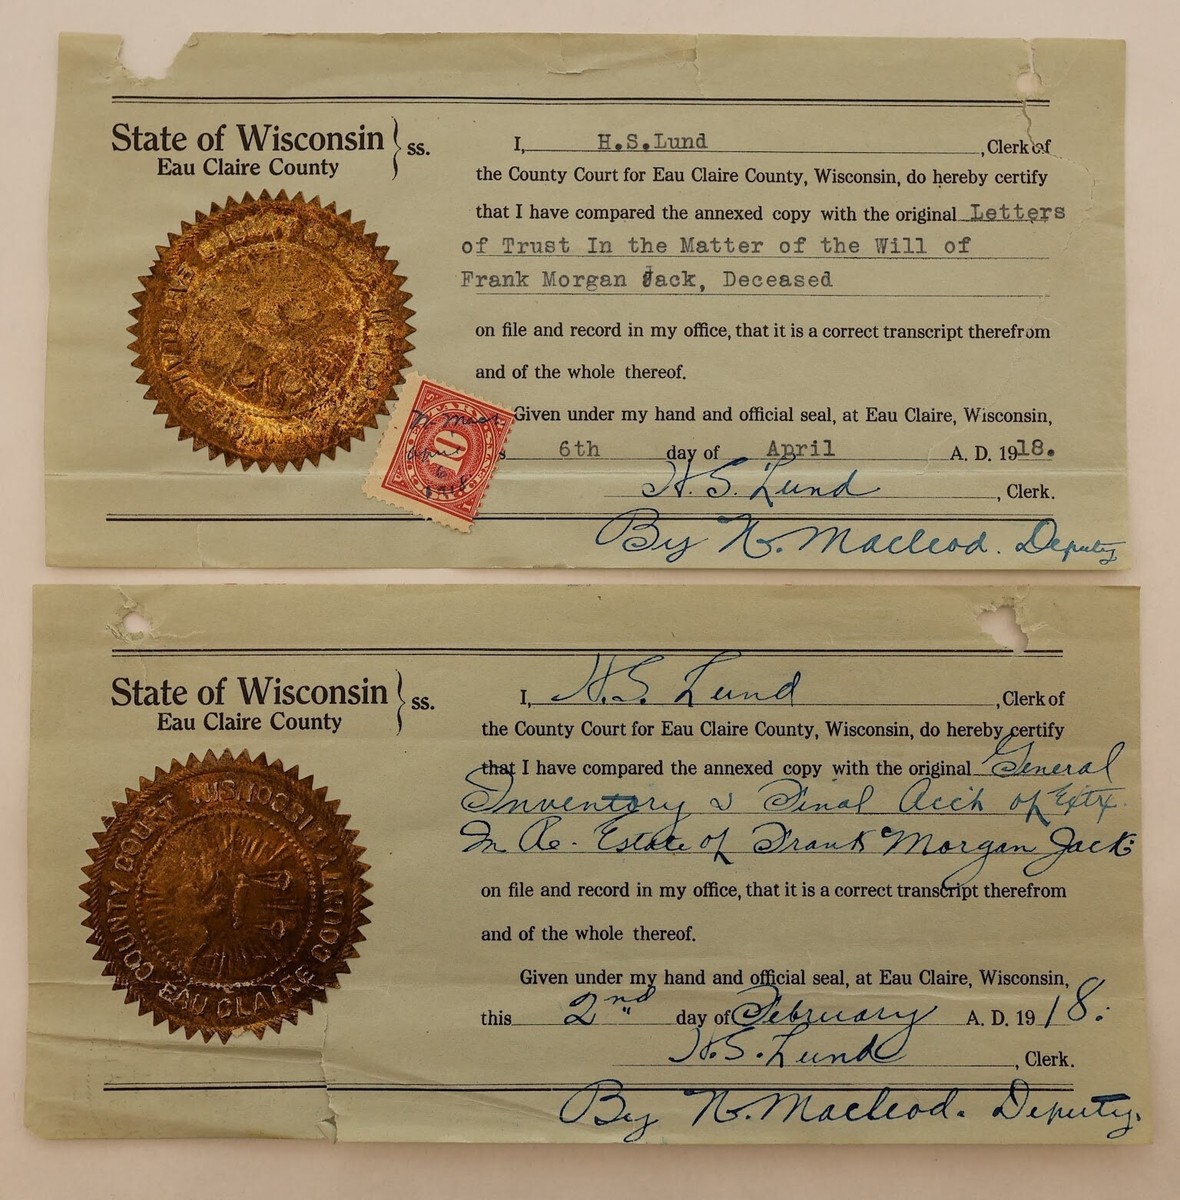 State of Wisconsin } ss.
Eau Claire County
I, H.S.Lund, Clerk of
the County Court for Eau Claire County, Wisconsin, do hereby certify
that I have compared the annexed copy with the original Letters
of Trust In the Matter of the Will of
Frank Morgan Jack, Deceased
on file and record in my office, that it is a correct transcript therefrom
and of the whole thereof.
Given under my hand and official seal, at Eau Claire, Wisconsin,
s 6th day of April A. D. 1918.
H. S. Lund, Clerk.
By N. Macleod. Deputy
10
April
6
1918
State of Wisconsin } ss.
Eau Claire County
I, H. S. Lund, Clerk of
the County Court for Eau Claire County, Wisconsin, do hereby certify
that I have compared the annexed copy with the original General
Inventory & Final Acct of Extrx.
In Re. Estate of Frank Morgan Jack.
on file and record in my office, that it is a correct transcript therefrom
and of the whole thereof.
Given under my hand and official seal, at Eau Claire, Wisconsin,
this 2nd day of February A. D. 1918.
H. S. Lund, Clerk.
By N. Macleod. Deputy.
COUNTY COURT
EAU CLAIRE COUNTY